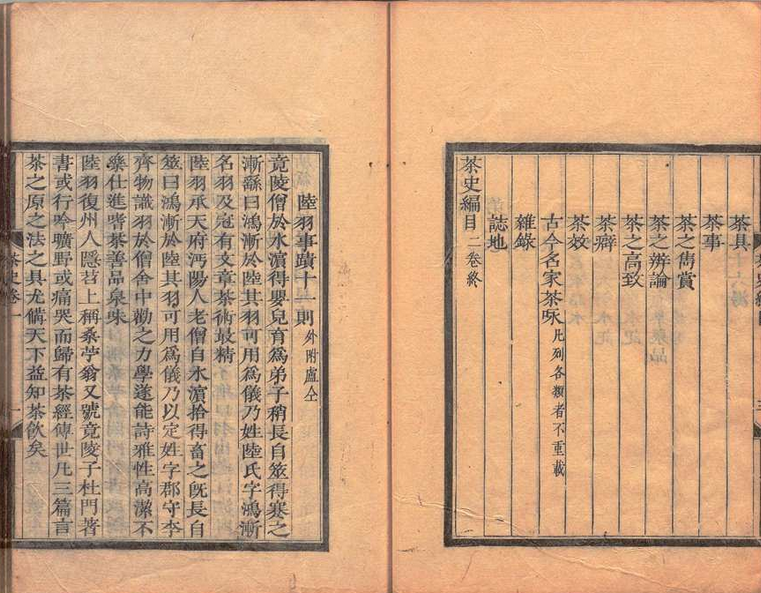 茶具
茶事
茶之雋賞
茶之辨論
茶之高致
茶癖
茶效
古今名家茶咏 凡列各類者不重載
雜錄
誌地
茶史編目二卷終
陸羽事蹟十一則 外附盧仝
竟陵僧於水濱得嬰兒育為弟子稍長自筮得蹇之
漸繇曰鴻漸於陸其羽可用為儀乃姓陸氏字鴻漸
名羽及冠有文章茶術最精
陸羽承天府沔陽人老僧自水濱拾得畜之旣長自
筮曰鴻漸於陸其羽可用爲儀乃以定姓字郡守李
齊物識羽於僧舍中勸之力學遂能詩雅性高潔不
樂仕進嗜茶善品泉味
陸羽復州人隱苕上稱桑苧翁又號竟陵子杜門著
書或行吟曠野或痛哭而歸有茶經傳世凡三篇言
茶之原之法之具尤備天下益知茶飲矣
茶史卷一
一